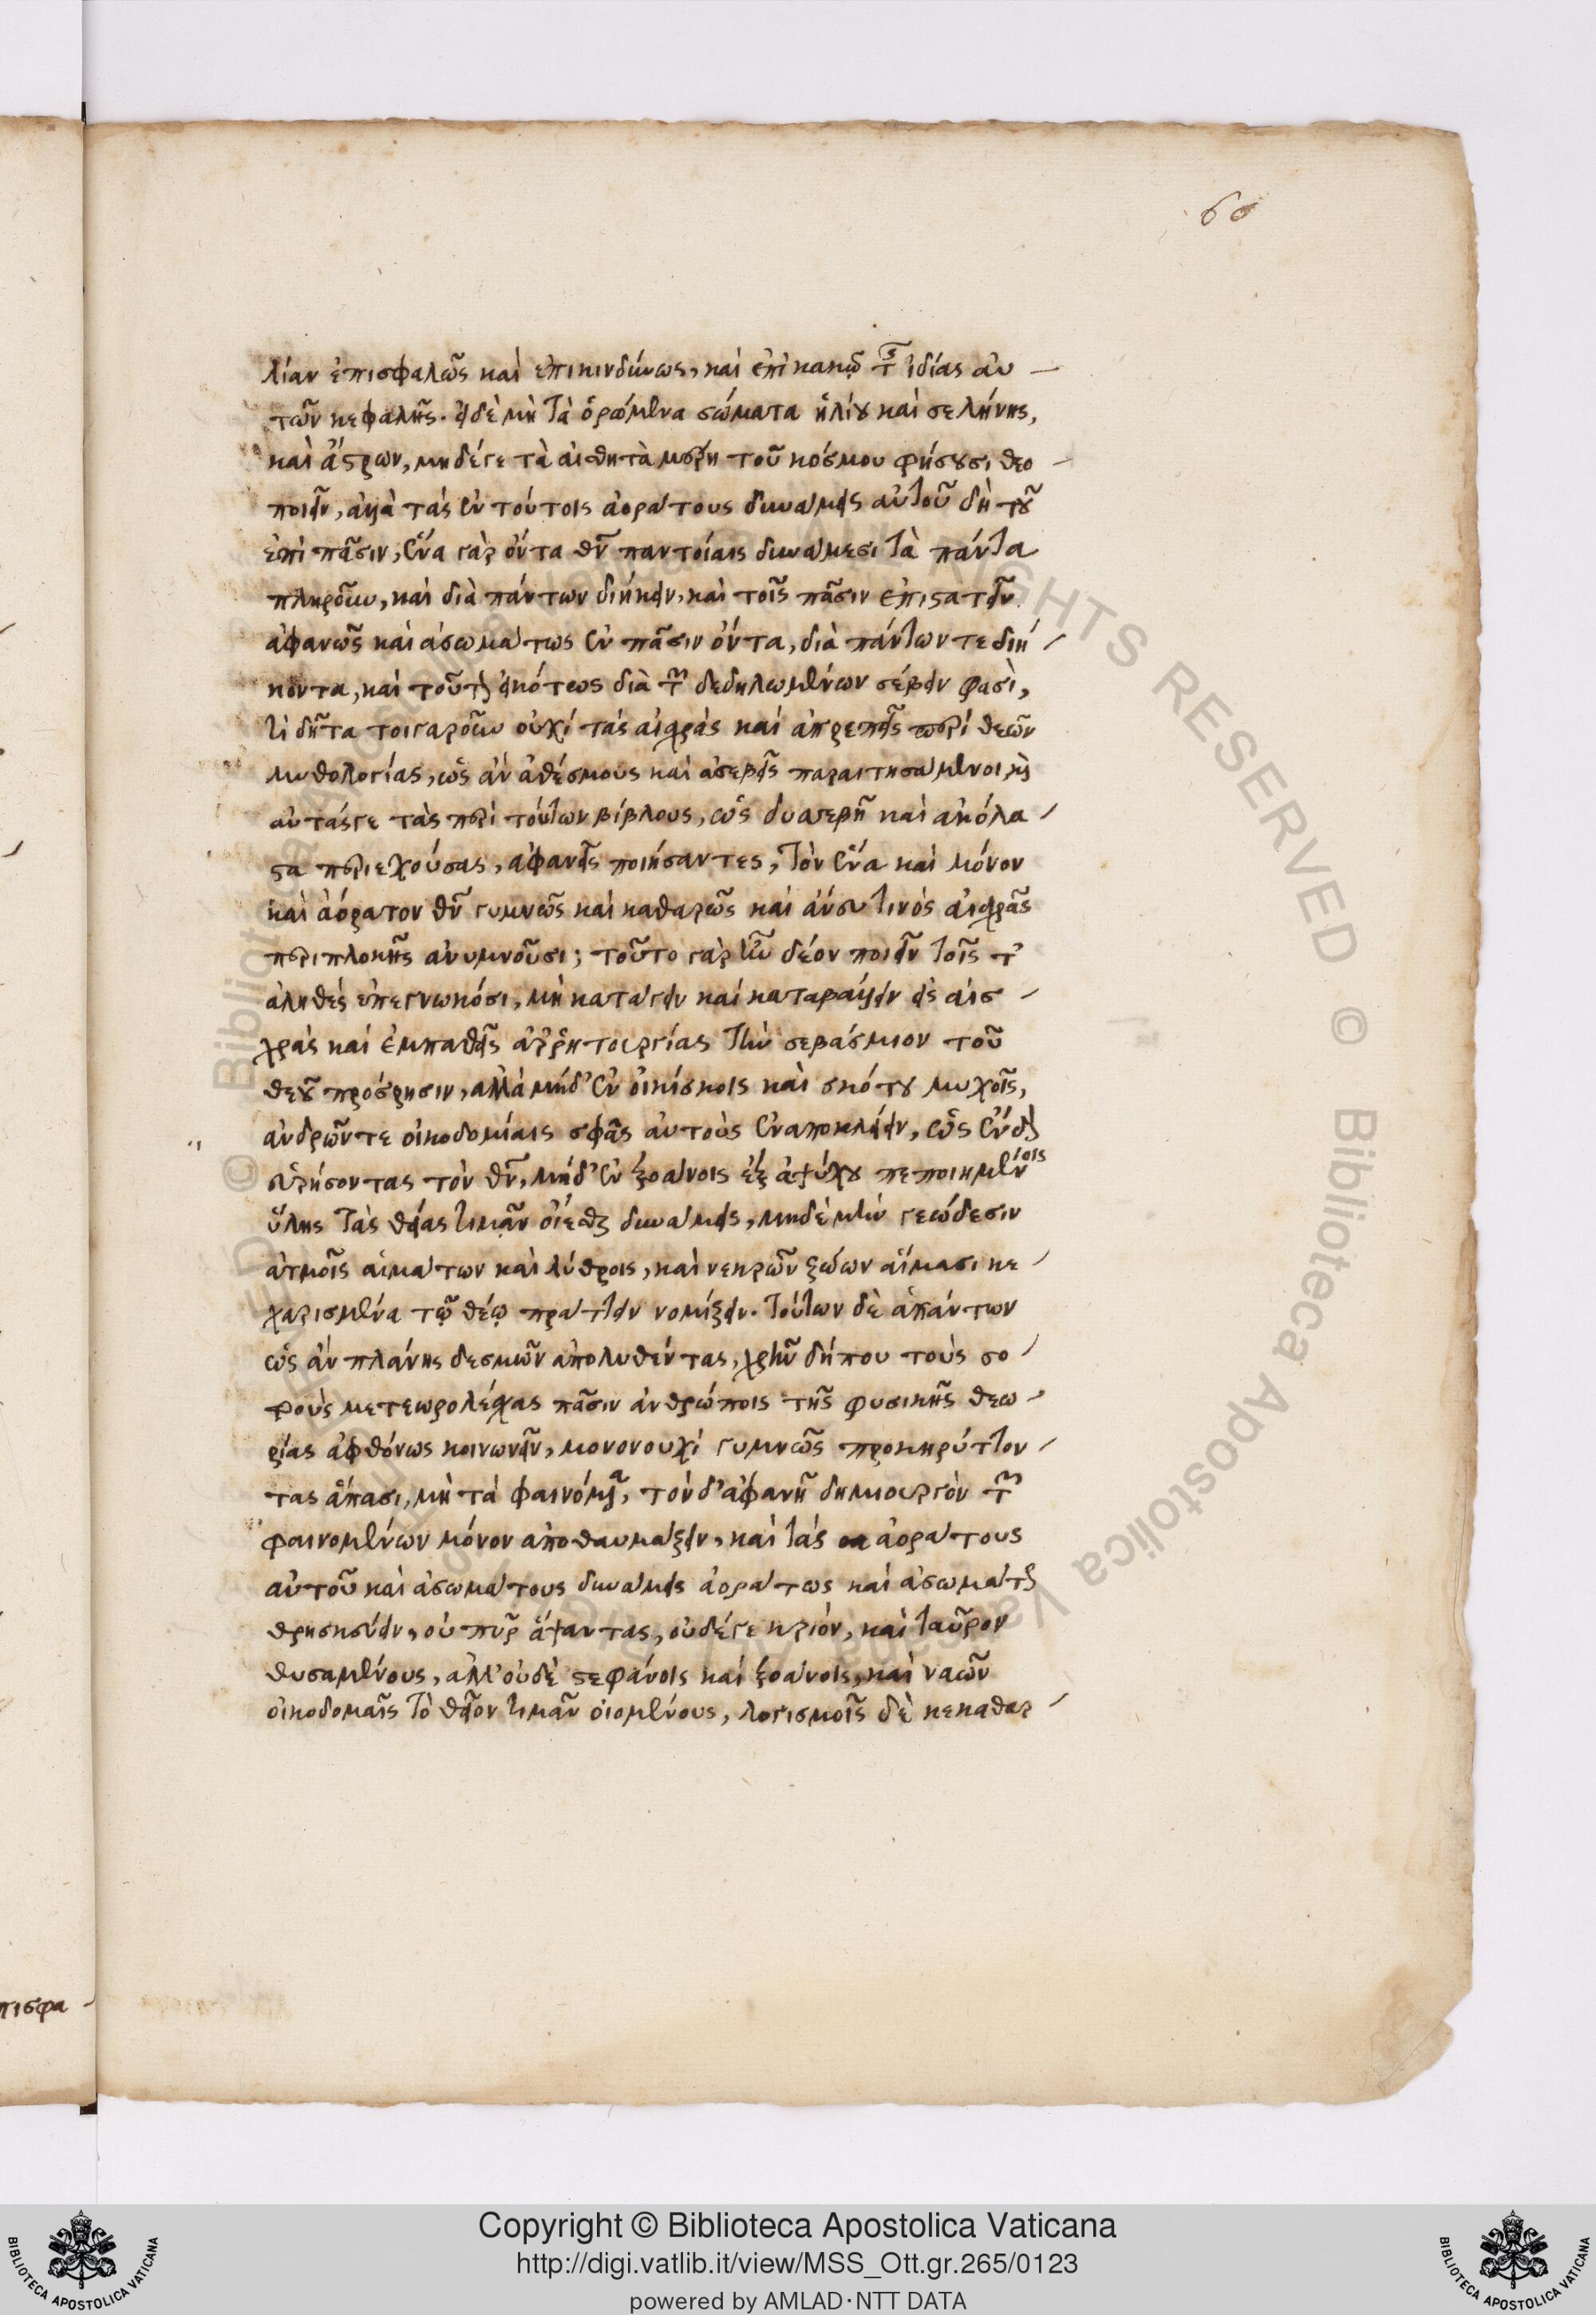 60
λίαν ἐπισφαλῶς καὶ ἐπικινδύνως, καὶ ἐπὶ κακῷ τῆς ἰδίας αὐ
τῶν κεφαλῆς. εἰ δὲ μὴ τὰ ὁρώμενα σώματα ἡλίου καὶ σελήνης,
καὶ ἄστρων, μηδέγε τὰ αἰσθητὰ μέρη τοῦ κόσμου φήσουσι θεο
ποιεῖν, ἀλλὰ τὰς ἐν τούτοις ἀοράτους δυνάμεις αὐτοῦ δὴ τοῦ
ἐπὶ πᾶσιν, ἕνα γὰρ ὄντα θεὸν παντοίαις δυνάμεσι τὰ πάντα
πληροῦν, καὶ διὰ πάντων διήκειν, καὶ τοῖς πᾶσιν ἐπιστατεῖν
ἀφανῶς καὶ ἀσωμάτως ἐν πᾶσιν ὄντα, διὰ πάντων τε διή
κοντα, καὶ τοῦτον εἰκότως διὰ τῶν δεδηλωμένων σέβειν φασὶ,
τί δῆτα τοιγαροῦν οὐχὶ τὰς αἰσχρὰς καὶ ἀπρεπεῖς περὶ θεῶν
μυθολογίας, ὡς ἂν ἀθέσμους καὶ ἀσεβεῖς παραιτησάμενοι, καὶ
αὐτάς γε τὰς περὶ τούτων βίβλους, ὡς δυσσεβῆ καὶ ἀκόλα
στα περιεχούσας, ἀφανεῖς ποιήσαντες, τὸν ἕνα καὶ μόνον
καὶ ἀόρατον θεὸν γυμνῶς καὶ καθαρῶς καὶ ἄνευ τινὸς αἰσχρᾶς
περιπλοκῆς ἀνυμνοῦσι; τοῦτο γὰρ ἦν δέον ποιεῖν τοῖς τὸ
ἀληθὲς ἐπεγνωκόσι, μὴ κατάγειν καὶ καταβάλλειν εἰς αἰσ
χρὰς καὶ ἐμπαθεῖς ἀρρητουργίας τὴν σεβάσμιον τοῦ
θεοῦ πρόσρησιν, ἀλλὰ μήδ' ἐν οἰκίσκοις καὶ σκότου μυχοῖς,
ἀνδρῶν τε οἰκοδομίαις σφᾶς αὐτοὺς ἐναποκλείειν, ὡς ἔνδον
εὑρήσοντας τὸν θεὸν, μήδ' ἐν ξοάνοις ἐξ ἀψύχου πεποιημένοις
ὕλης τὰς θείας τιμᾶν οἴεσθαι δυνάμεις, μηδὲ μὴν γεώδεσιν
ἀτμοῖς αἱμάτων καὶ λύθροις, καὶ νεκρῶν ζώων αἵμασι κε
χαρισμένα τῷ θεῷ πράττειν νομίζειν. τούτων δὲ ἁπάντων
ὡς ἂν πλάνης δεσμῶν ἀπολυθέντας, χρῆν δήπου τοὺς σο
φοὺς μετεωρολέσχας πᾶσιν ἀνθρώποις τῆς φυσικῆς θεω
ρίας ἀφθόνως κοινωνεῖν, μονονουχὶ γυμνῶς προκηρύττον
τας ἅπασι, μὴ τὰ φαινόμενα, τὸν δ' ἀφανῆ δημιουργὸν τῶν
φαινομένων μόνον ἀποθαυμάζειν, καὶ τὰς ἀοράτους
αὐτοῦ καὶ ἀσωμάτους δυνάμεις ἀοράτως καὶ ἀσωμάτως
θρησκεύειν, οὐ πῦρ ἅψαντας, οὐδέ γε κριὸν, καὶ ταῦρον
θυσαμένους, ἀλλ' οὐδὲ στεφάνοις καὶ ξοάνοις, καὶ ναῶν
οἰκοδομαῖς τὸ θεῖον τιμᾶν οἰομένους, λογισμοῖς δὲ κεκαθαρ
πισφα
Copyright © Biblioteca Apostolica Vaticana
http://digi.vatlib.it/view/MSS_Ott.gr.265/0123
powered by AMLAD·NTT DATA